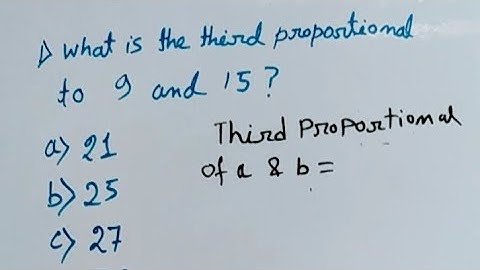 1) What is the third proportional
to 9 and 15?
a) 21
b) 25
c) 27
Third Proportional
of a & b =